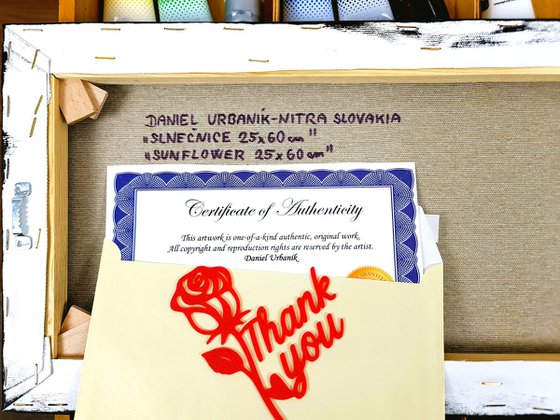 DANIEL URBANÍK-NITRA SLOVAKIA
„SLNEČNICE 25x60 cm"
„SUNFLOWER 25x60 cm"
Certificate of Authenticity
This artwork is one-of-a-kind authentic, original work.
All copyright and reproduction rights are reserved by the artist.
Daniel Urbaník
Thank
you